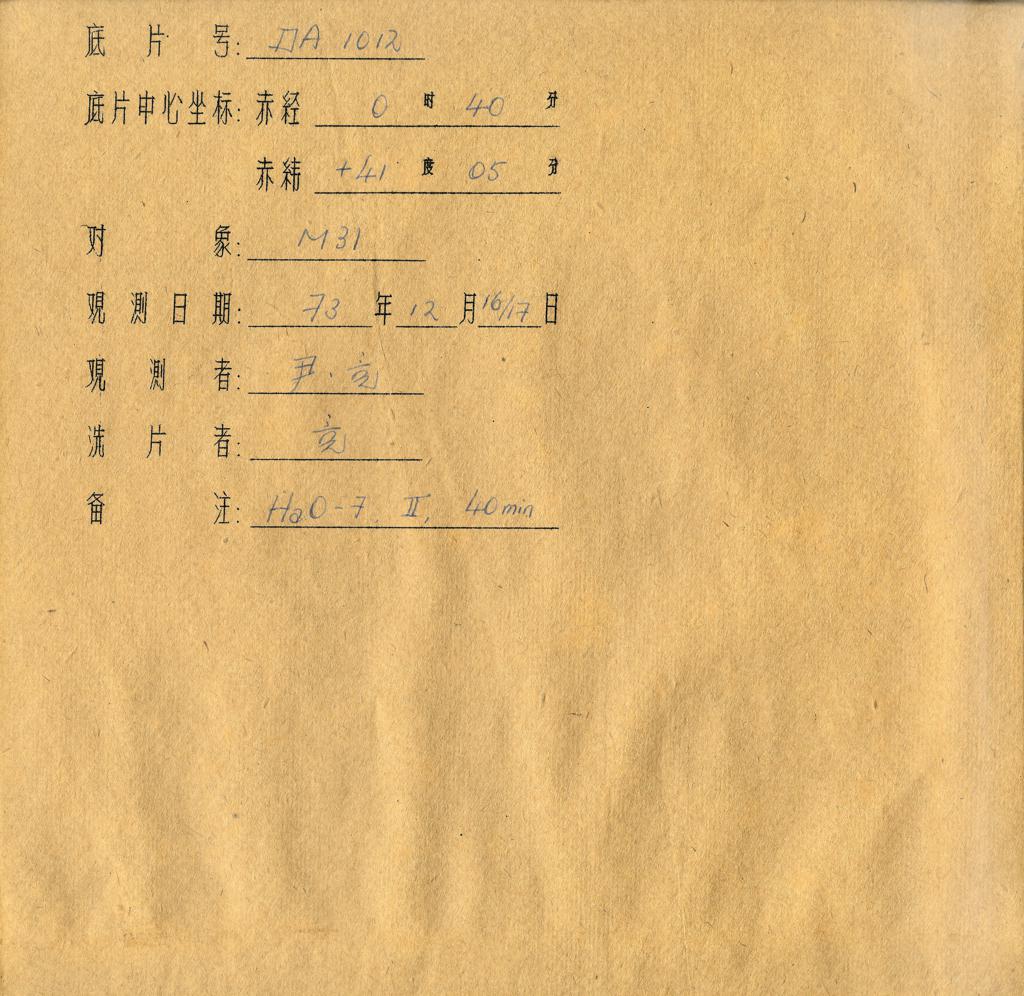 底片号: DA 1012
底片中心坐标: 赤经 0 时 40 分
赤纬 +41 度 05 分
对象: M31
观测日期: 73 年 12 月 16/17 日
观测者: 尹·亮
洗片者: 亮
备注: HaO-7. II, 40min